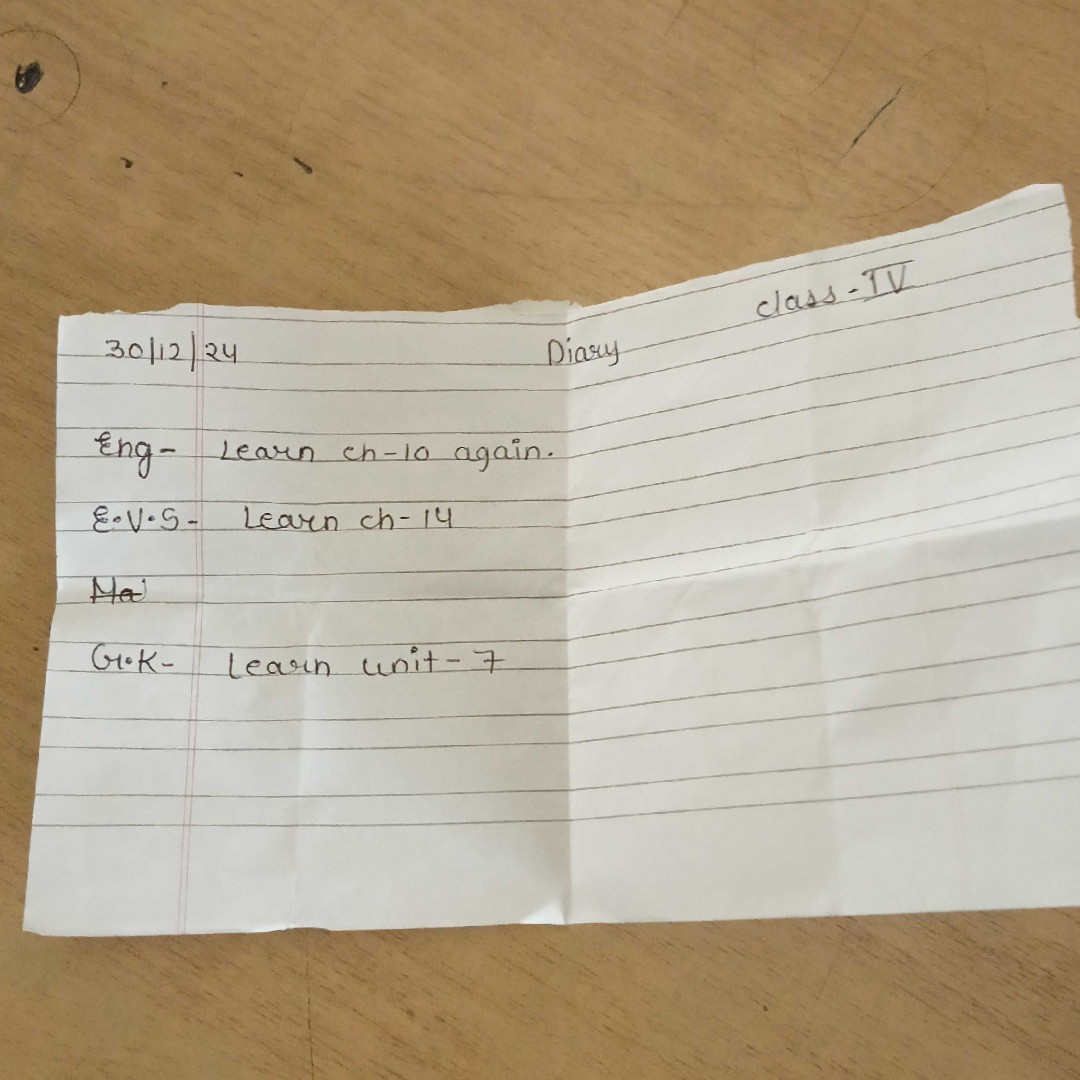 class - IV
30/12/24 Diary
Eng- Learn ch-10 again.
E.V.S- Learn ch-14
G.K- Learn unit-7